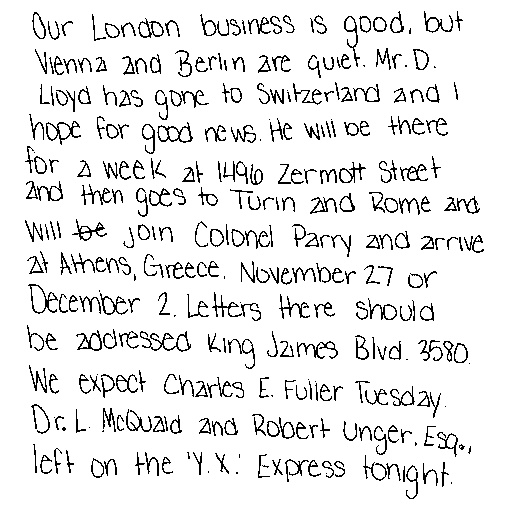 Our London business is good, but
Vienna and Berlin are quiet. Mr. D.
Lloyd has gone to Switzerland and I
hope for good news. He will be there
for a week at 1496 Zermott Street
and then goes to Turin and Rome and
will be join Colonel Parry and arrive
at Athens, Greece, November 27 or
December 2. Letters there should
be addressed King James Blvd. 3580.
We expect Charles E. Fuller Tuesday
Dr. L. McQuaid and Robert Unger, Esq.,
left on the 'Y.X.' Express tonight.